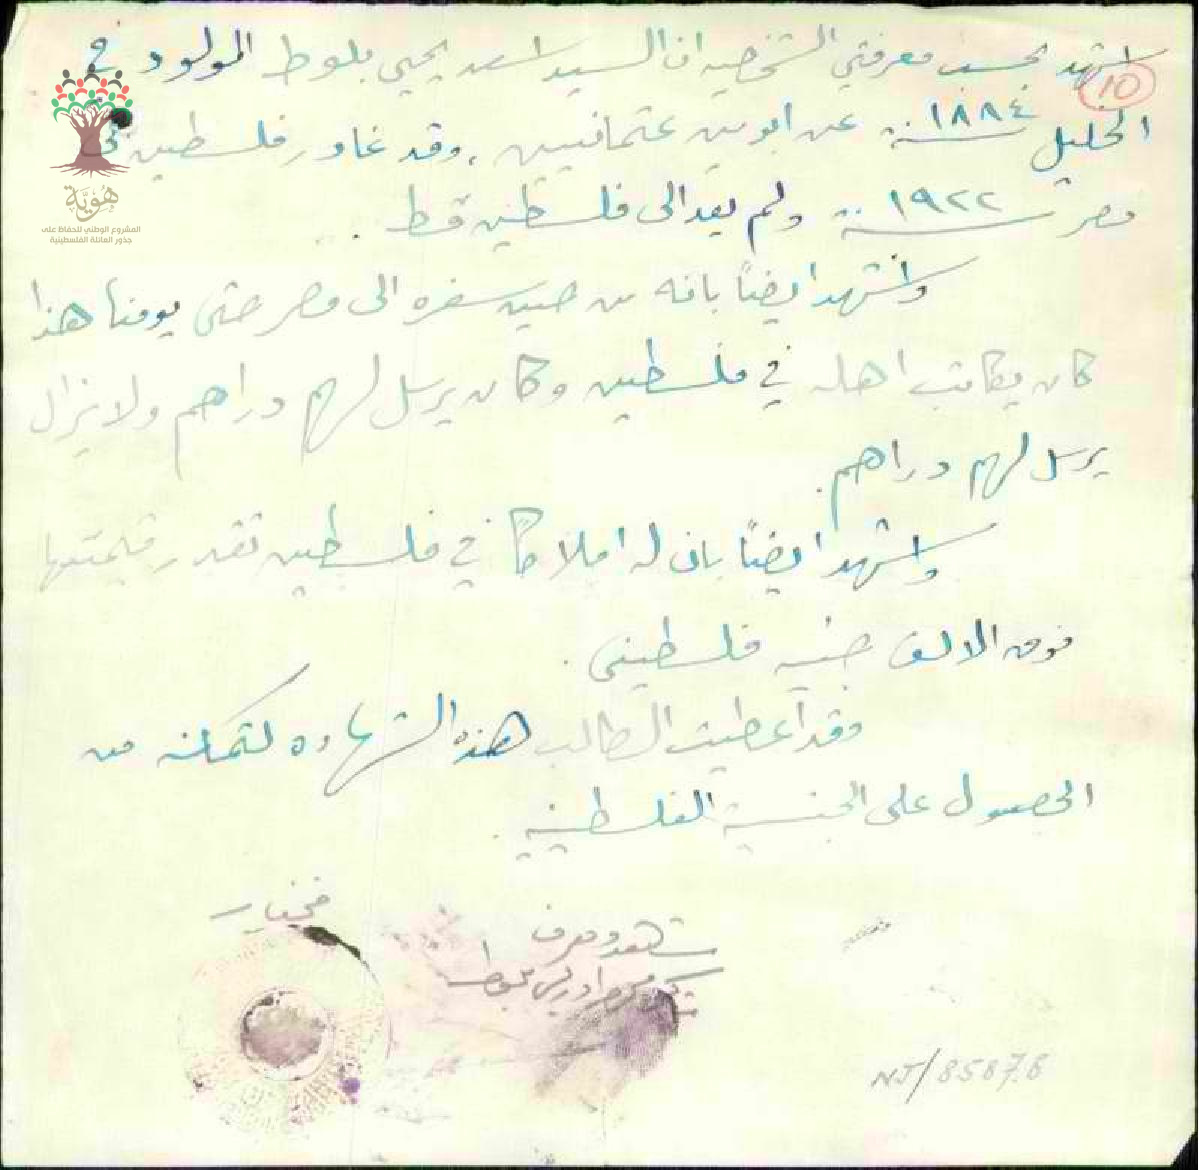 اشهد بحسب معرفتي الشخصيه ان السيد اسعد يحيى بلوط المولود في
10
الخليل سنة ١٨٨٤ عن ابوين عثمانيين، وقد غادر فلسطين الى
مصر سنة ١٩٢٢ ولم يعد الى فلسطين قط.
واشهد ايضاً بانه من حين سفره الى مصر حتى يومنا هذا
كان يكاتب اهله في فلسطين وكان يرسل لهم دراهم ولا يزال
يرسل لهم دراهم.
واشهد ايضاً بان له املاكاً في فلسطين تقدر قيمتها
فوق الالف جنيه فلسطيني.
وقد أعطيت الطالب هذه الشهاده لتمكنه من
الحصول على الجنسية الفلسطينيه.
مختار
شاهد ومعرف
NJ/8587.8
هُويَّة
المشروع الوطني للحفاظ على
جذور العائلة الفلسطينية